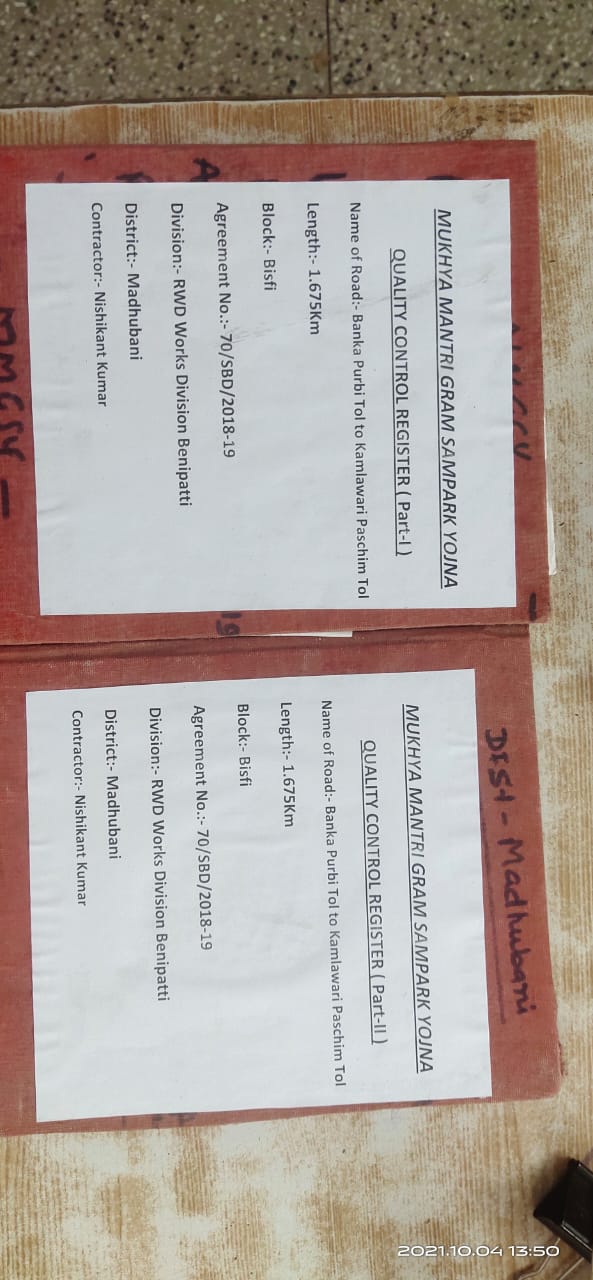 MUKHYA MANTRI GRAM SAMPARK YOJNA
QUALITY CONTROL REGISTER ( Part-I )
Name of Road:- Banka Purbi Tol to Kamlawari Paschim Tol
Length:- 1.675Km
Block:- Bisfi
Agreement No.:- 70/SBD/2018-19
Division:- RWD Works Division Benipatti
District:- Madhubani
Contractor:- Nishikant Kumar
MMGSY -
DISt - Madhubani
MUKHYA MANTRI GRAM SAMPARK YOJNA
QUALITY CONTROL REGISTER ( Part-II )
Name of Road:- Banka Purbi Tol to Kamlawari Paschim Tol
Length:- 1.675Km
Block:- Bisfi
Agreement No.:- 70/SBD/2018-19
Division:- RWD Works Division Benipatti
District:- Madhubani
Contractor:- Nishikant Kumar
2021.10.04 13:50